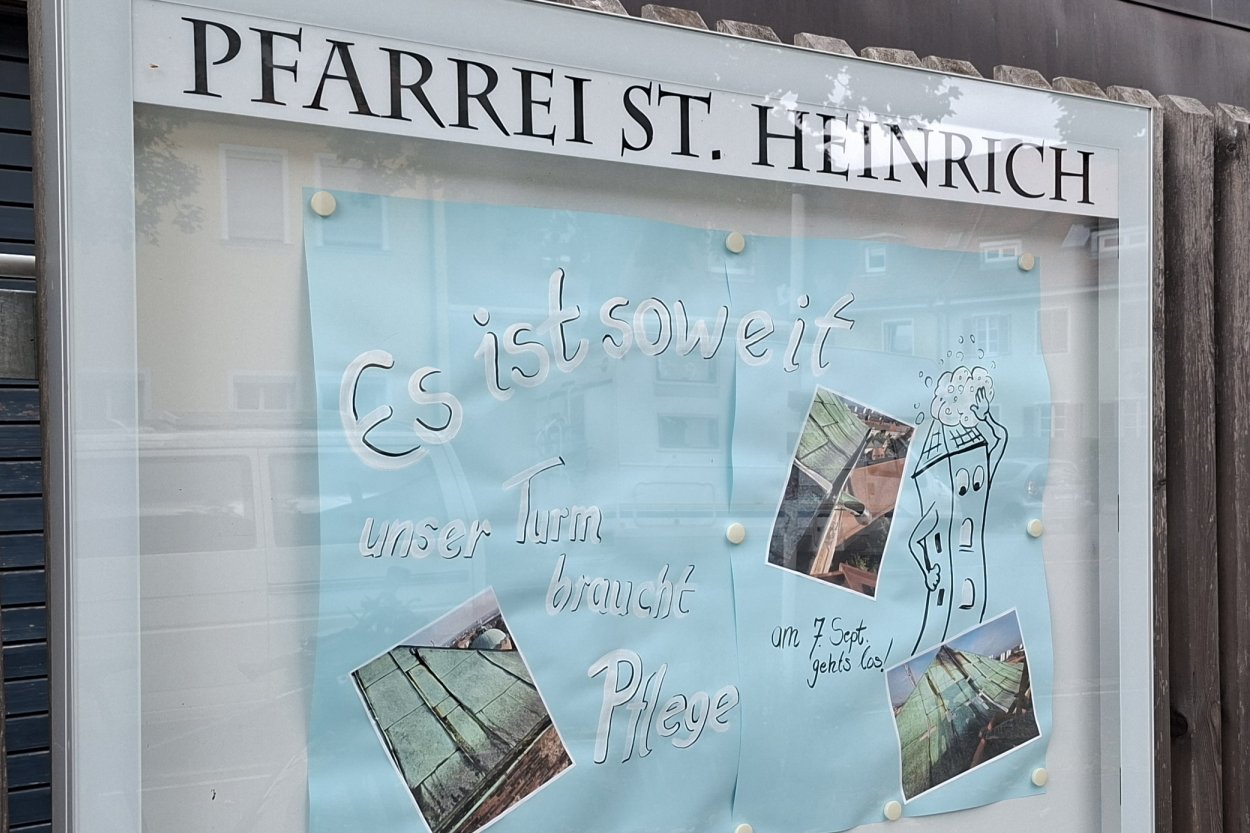 PFARREI ST. HEINRICH
Es ist soweit
unser Turm
braucht
Pflege
am 7. Sept.
gehts los!